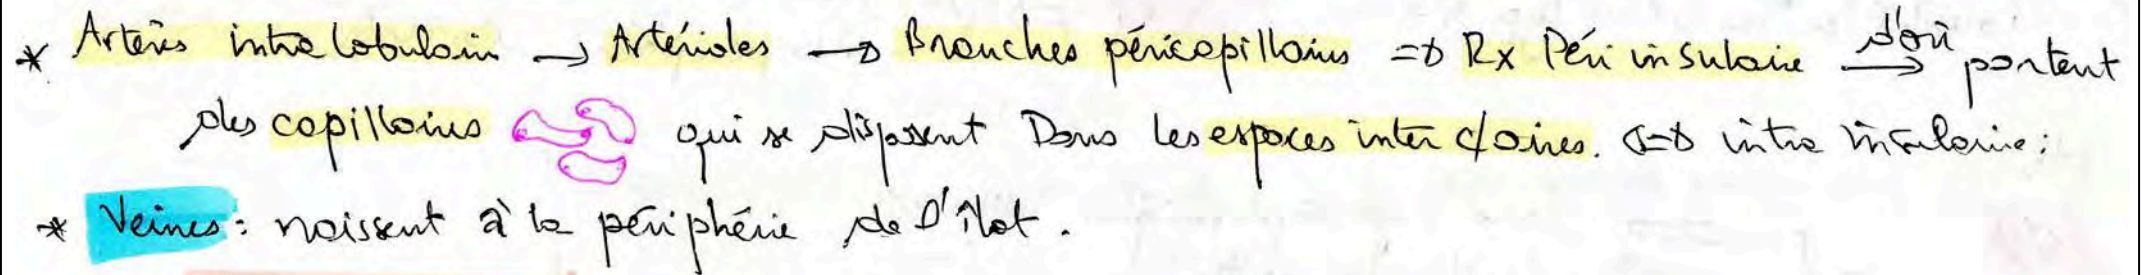 * Artères intralobulair → Artérioles → Branches péricapillaires => Rx Péri insulaire d'où → partent
des capillaires qui se disposent Dans les espaces inter c/aires. <=> intra insulaire :
* Veines : naissent à la périphérie de l'îlot.